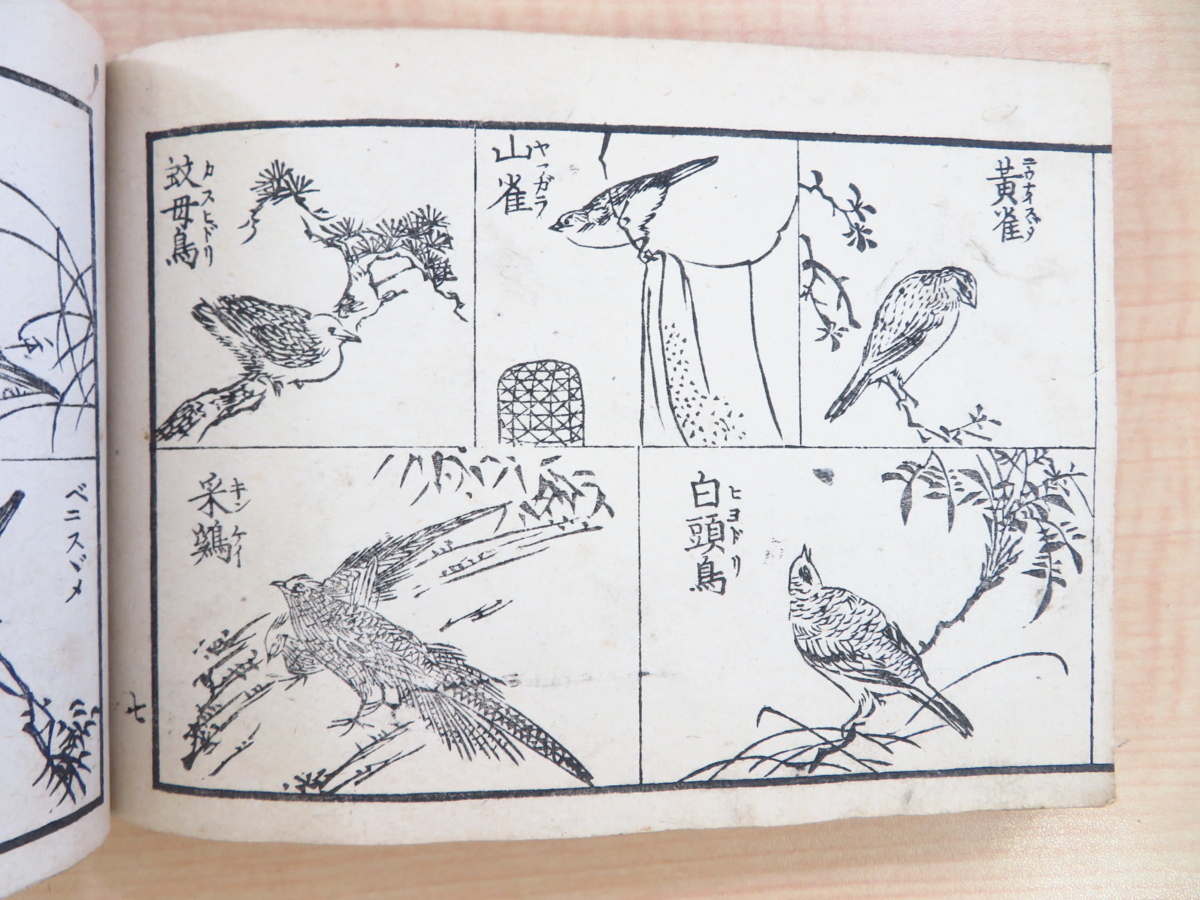 黄雀
山雀
ヤマガラ
蚊母鳥
カスヒドリ
白頭鳥
ヒヨドリ
采鷄
キンケイ
七
ベニスヾメ